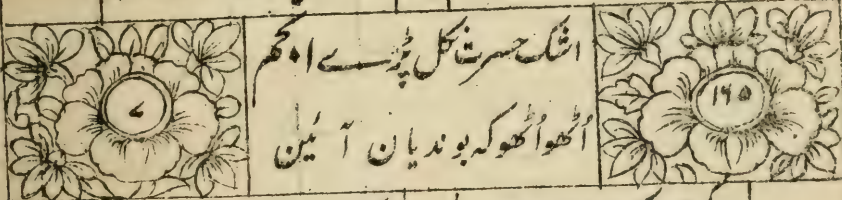 ۱۶۵
اشک حسرت نکل پڑے انجم
اُٹھو اُٹھو کہ بوندیان آئین
۷